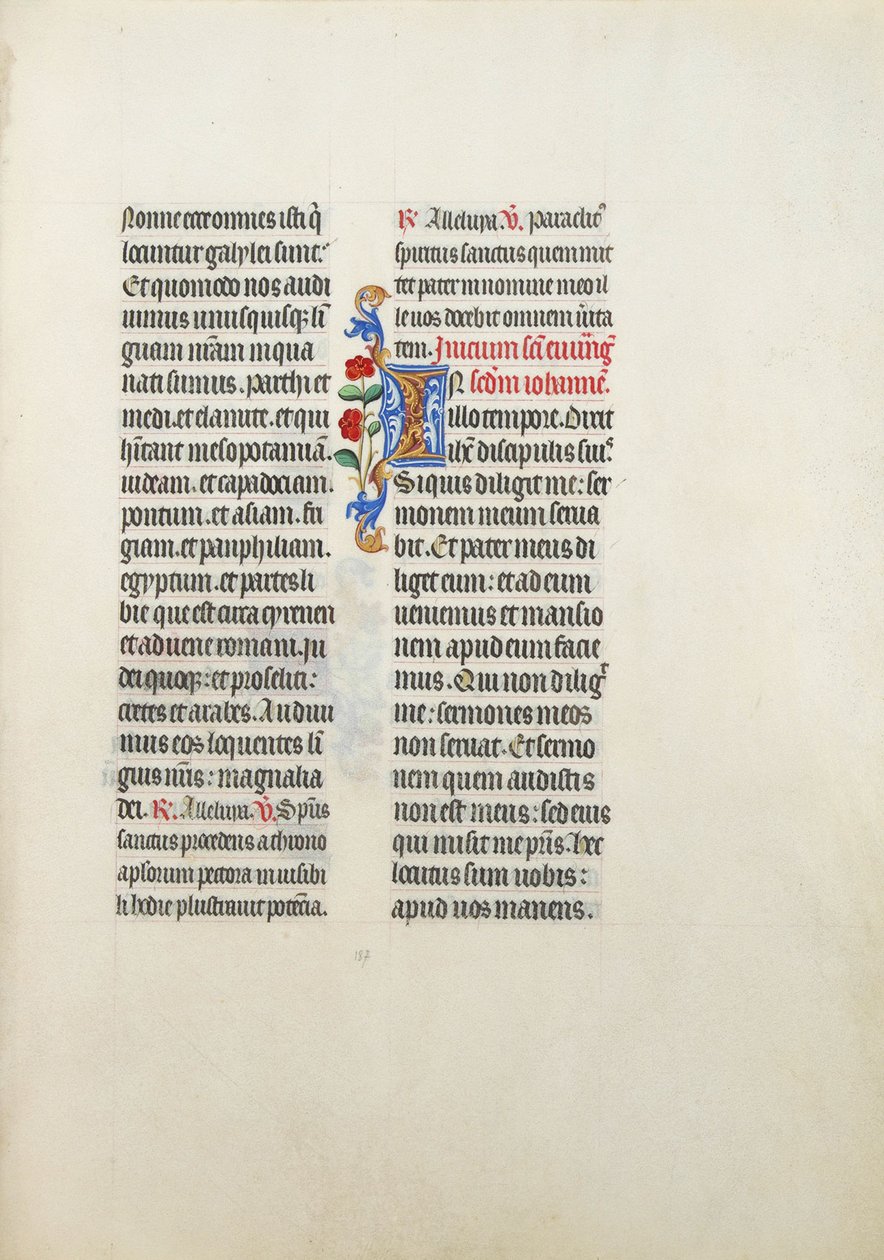 Nonne ecce omnes isti q̄
locuntur galylei sunt:
Et quomodo nos audi
uimus unusquisqꝫ li̅
guam nr̄am in qua
nati sumus. Parthi et
medi. et elamite. et qui
hītant mesopotamiā.
iudeam. et capadociam.
pontum. et asiam. fri
giam. et panphiliam.
egyptum. et partes li
bie que est circa cyrenen
et aduene romani. Ju
dei quoqꝫ: et proseliti:
cretes et arabes. Audiui
mus eos loquentes li̅
guis nr̄is: magnalia
dei. R̷. Alleluya. V̷. Sp̄us
sanctus procedens a throno
ap̄lorum pectora inuisibi
li hodie plustrauit potēcia.
R̷ Alleluya. V̷. Paraclitꝰ
spiritus sanctus quem mit
tet pater in nomine meo il
le uos docebit omnem ūita
tem. Inicium sc̄i euu̅ng̅
IN sc̄dm iohannē.
illo tempore. Dixit
ih̄c discipulis suisꝰ
Si quis diligit me: ser
monem meum serua
bit. Et pater meus di
liget eum: et ad eum
ueniemus et mansio
nem apud eum facie
mus. Qui non diligᷣ
me: sermones meos
non seruat. Et sermo
nem quem audistis
non est meus: sed eius
qui misit me pr̄is. hec
locutus sum uobis:
apud uos manens.
187